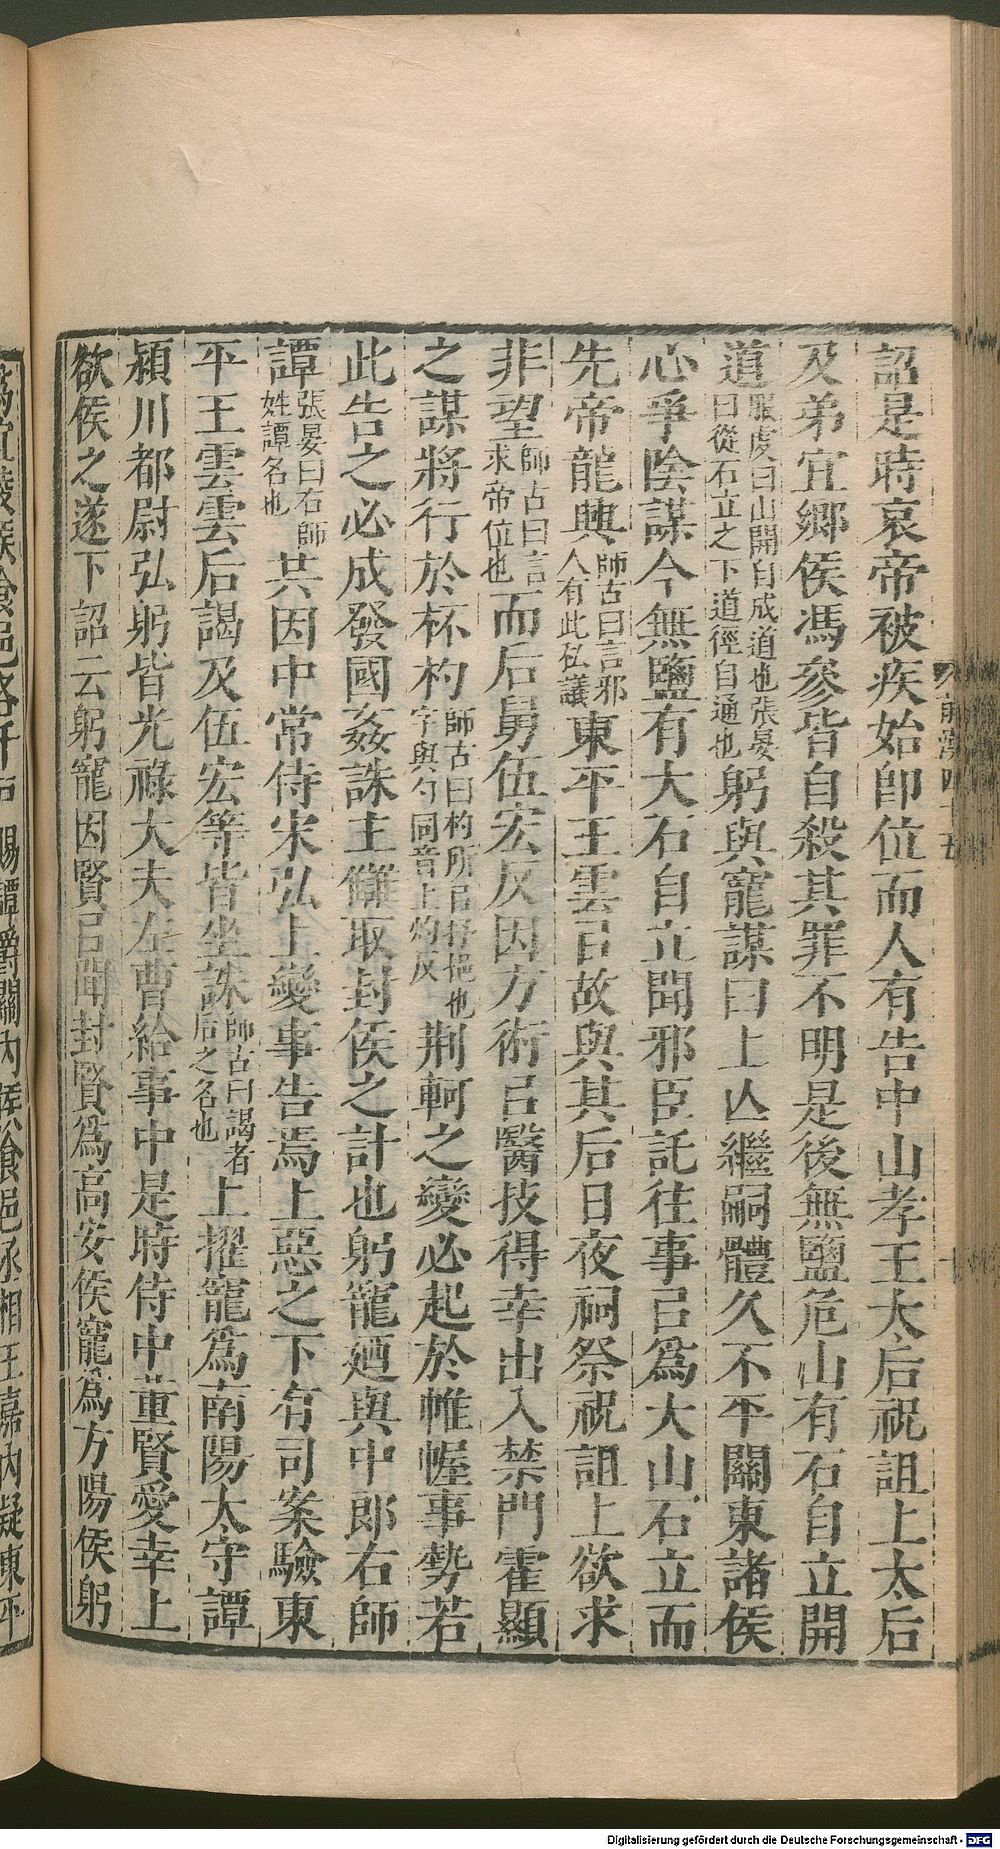 詔是時哀帝被疾始卽位而人有告中山孝王太后祝詛上太后
及弟宜鄉侯馮參皆自殺其罪不明是後無鹽危山有石自立開
道服虔曰山開自成道也張晏曰從石立之下道徑自通也躬與寵謀曰上亾繼嗣體久不平關東諸侯
心爭陰謀今無鹽有大石自立聞邪臣託往事㠯爲大山石立而
先帝龍興師古曰言邪人有此私議東平王雲㠯故與其后日夜祠祭祝詛上欲求
非望師古曰言求帝位也而后舅伍宏反因方術㠯醫技得幸出入禁門霍顯
之謀將行於杯杓師古曰杓所㠯抒挹也字與勺同音上灼反荆軻之變必起於帷幄事勢若
此告之必成發國姦誅主讎取封侯之計也躬寵廼與中郎右師
譚張晏曰右師姓譚名也共因中常侍宋弘上變事告焉上惡之下有司案驗東
平王雲雲后謁及伍宏等皆坐誅師古曰謁者后之名也上擢寵爲南陽太守譚
潁川都尉弘躬皆光祿大夫左曹給事中是時侍中董賢愛幸上
欲侯之遂下詔云躬寵因賢㠯聞封賢爲高安侯寵爲方陽侯躬
賜譚爵關內侯食邑丞相王嘉內疑東平
前漢四十五
十
Digitalisierung gefördert durch die Deutsche Forschungsgemeinschaft - DFG